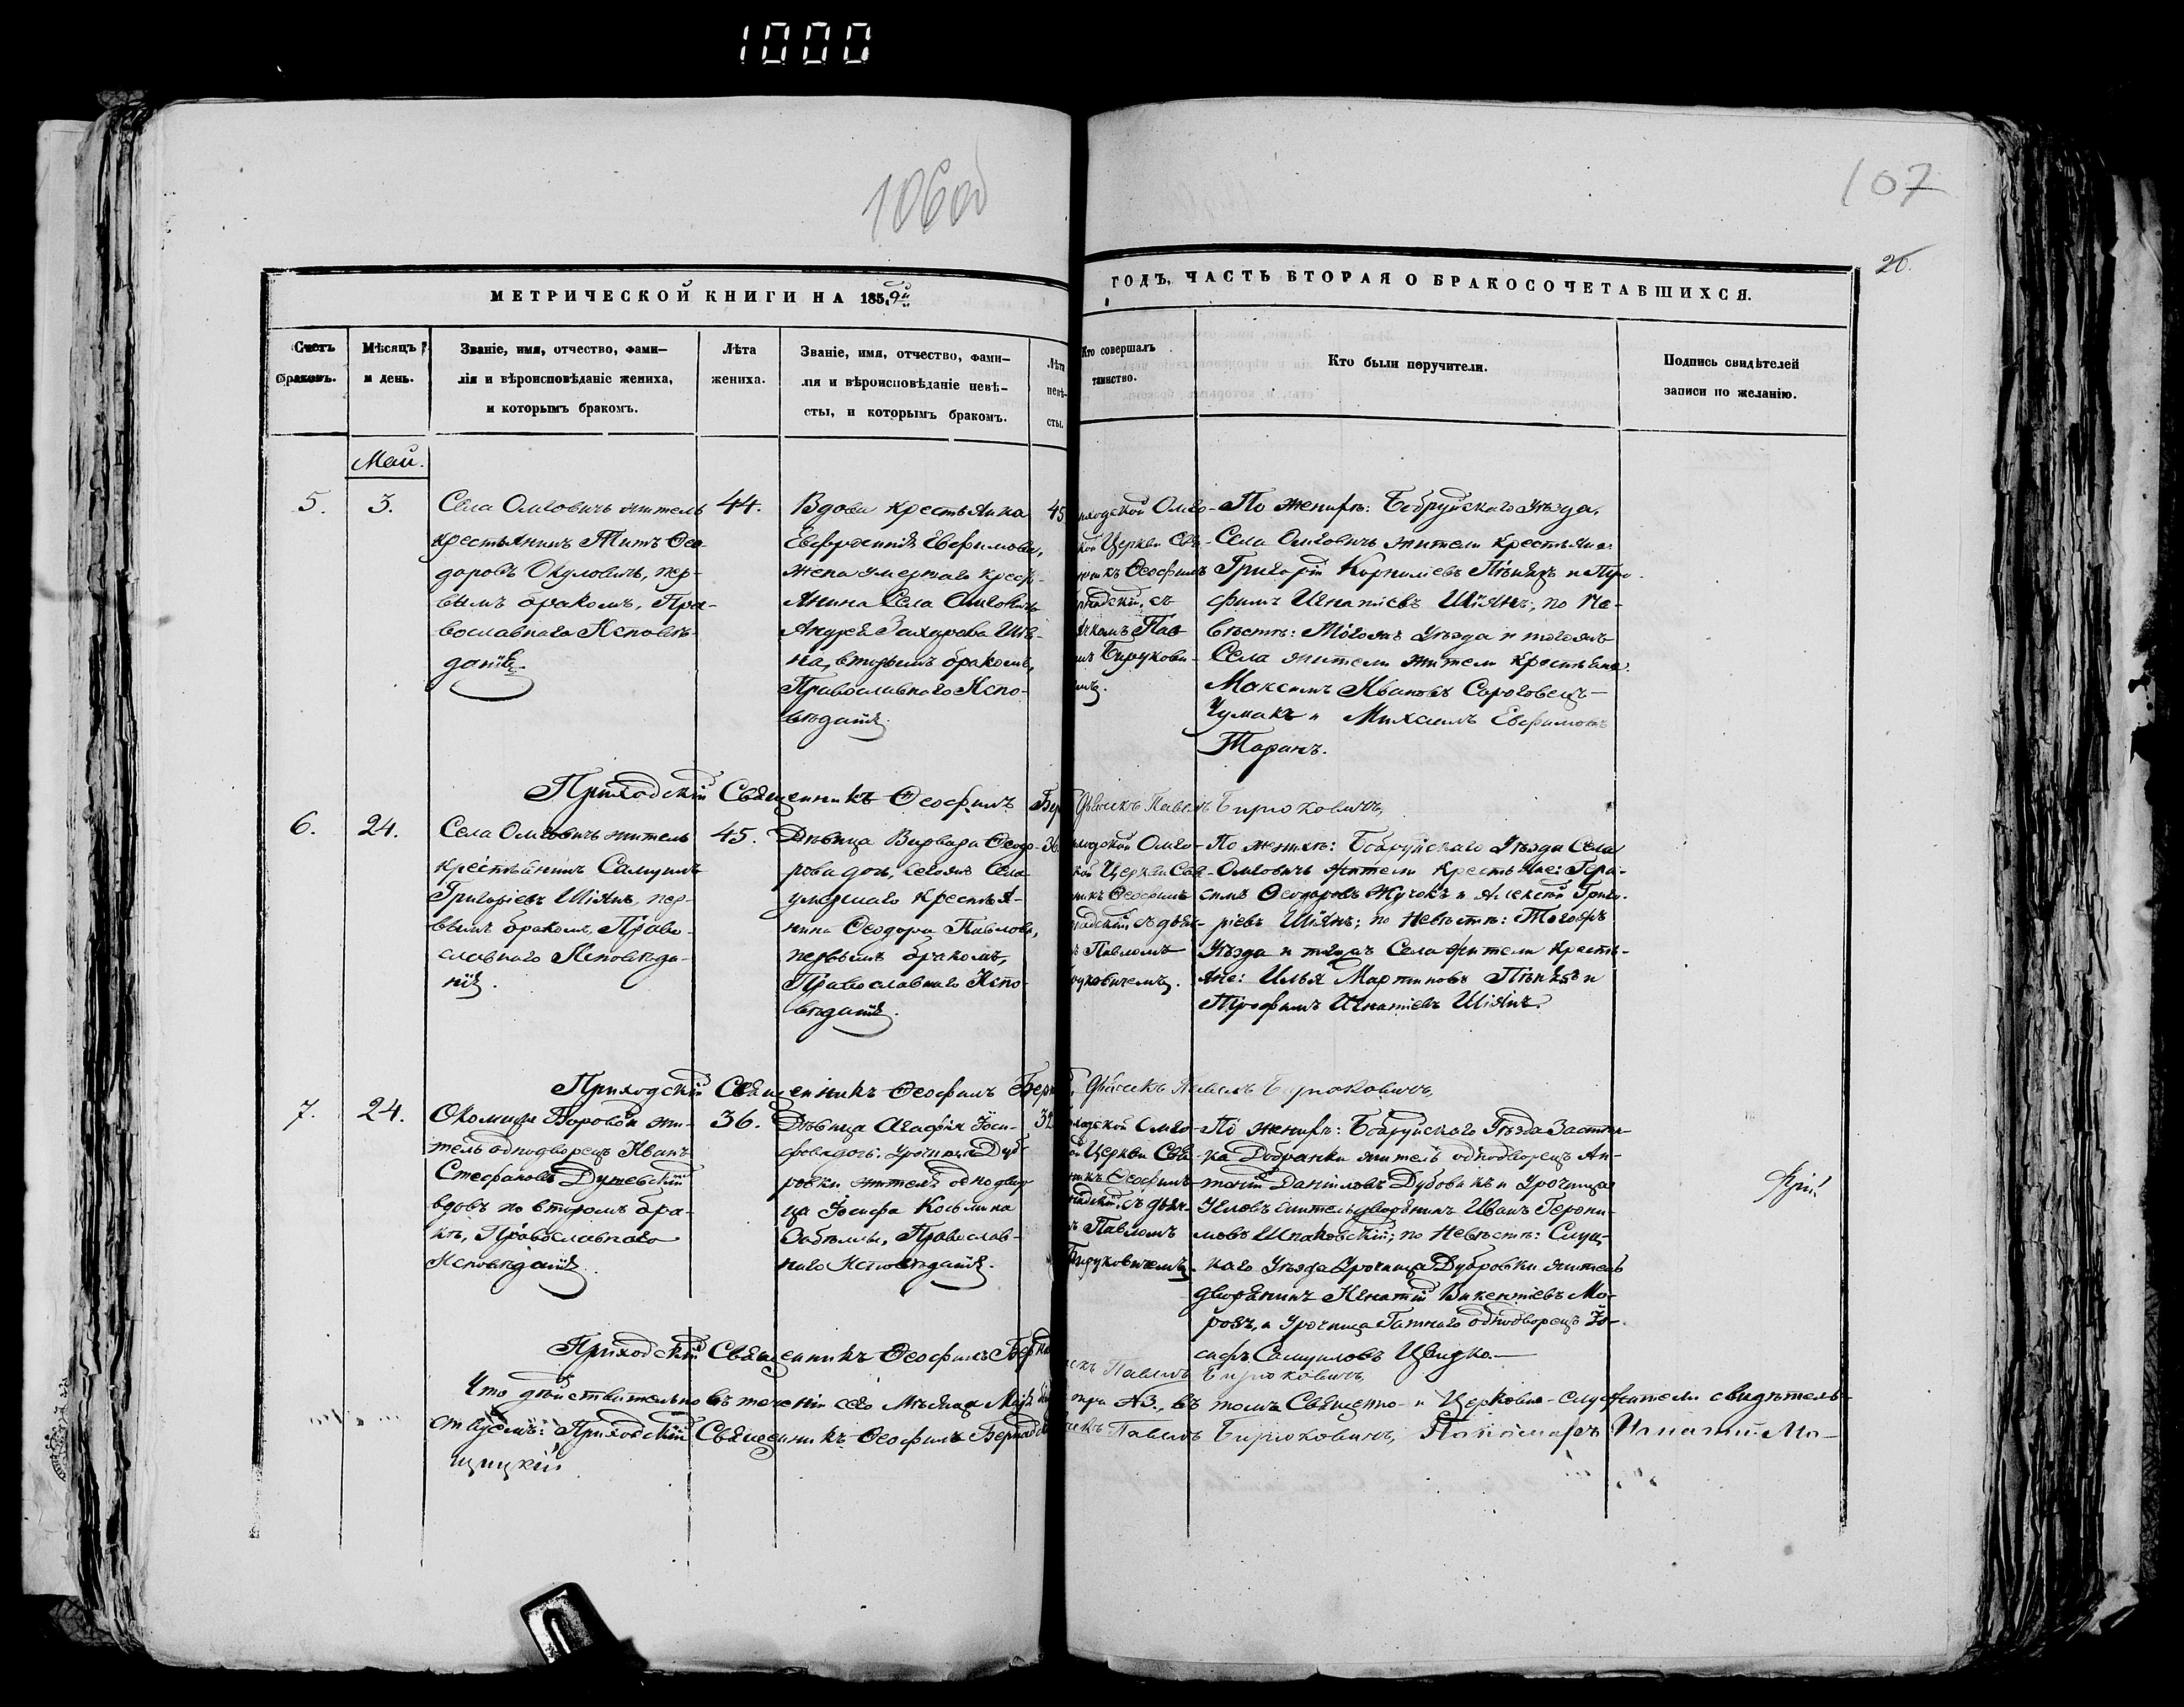 1000
106об
107
26.
МЕТРИЧЕСКОЙ КНИГИ НА 1859й
ГОДЪ, ЧАСТЬ ВТОРАЯ О БРАКОСОЧЕТАВШИХСЯ.
Счетъ
браковъ.
Мѣсяцъ
и день.
Званіе, имя, отчество, фами-
лія и вѣроисповѣданіе жениха,
и которымъ бракомъ.
Лѣта
жениха.
Званіе, имя, отчество, фами-
лія и вѣроисповѣданіе невѣ-
сты, и которымъ бракомъ.
Лѣта
невѣ-
сты.
Кто совершалъ
таинство.
Кто были поручители.
Подпись свидѣтелей
записи по желанію.
Май.
5.
3.
Села Омговичъ житель
крестьянинъ Титъ Ѳео-
доровъ Окуловичъ, пер-
вымъ бракомъ, Пра-
вославнаго Исповѣ-
данія.
44.
Вдова крестьянка
Евфросинія Евфимова,
жена умершаго кресть-
янина Села Омговичъ
Андрея Захарова Шія-
на, вторымъ бракомъ,
Православнаго Испо-
вѣданія.
45
иходской Омго-
кой Церкви Свя-
никъ Ѳеофилъ
надскій, съ
ячкомъ Пав-
мъ Бирукови-
мъ.
По женихѣ: Бобруйскаго Уѣзда,
Села Омговичъ жители крестьяне:
Григорій Корниліевъ Пѣнязь и Тро-
фимъ Игнатіевъ Шіянъ, по Не-
вѣстѣ: Тогожъ Уѣзда и тогожъ
Села жители жители крестьяне:
Максимъ Ивановъ Сороговецъ
Чумакъ и Михаилъ Евфимовъ
Таранъ.
Приходскій Священникъ Ѳеофилъ Бер
Дьячекъ Павелъ Бирюковичъ,
6.
24.
Села Омговичъ житель
крестьянинъ Самуилъ
Григоріевъ Шіянъ, пер-
вымъ бракомъ, Право-
славнаго Исповѣда-
нія.
45.
Дѣвица Варвара Ѳеодо-
рова дочь, тогожъ Села
умершаго крестья-
нина Ѳеодора Павлова,
первымъ бракомъ,
Православнаго Испо-
вѣданія.
36
иходской Омго-
кой Церкви Свя-
никъ Ѳеофилъ
надскій, съ дьяч-
ъ Павломъ
руковичемъ.
По женихѣ: Бобруйскаго Уѣзда Села
Омговичъ жители крестьяне: Гера-
симъ Ѳеодоровъ Жучокъ и Алексѣй Григо-
ріевъ Шіянъ; по Невѣстѣ: Тогожъ
Уѣзда и тогожъ Села жители кресть-
яне: Илья Мартиновъ Пѣнязь и
Трофимъ Игнатіевъ Шіянъ.
Приходскій Священникъ Ѳеофилъ Бер
Дьячекъ Павелъ Бирюковичъ,
7.
24.
Околицы Боровой жи-
тель однодворецъ Иванъ
Стефановъ Душевскій
вдовъ по второмъ бра-
кѣ, Православнаго
Исповѣданія.
36.
Дѣвица Агафія Іоси-
фова дочь: Урочища Дуб-
ровки жителя однодвор
ца Іосифа Косьмина
Забѣллы, Православ-
наго Исповѣданія.
32
иходской Омго-
ой Церкви Свя-
никъ Ѳеофилъ
надскій, съ дьяч-
ъ Павломъ
Бируковичемъ.
По женихѣ: Бобруйскаго Уѣзда Застѣн-
ка Добранки житель однодворецъ Ан-
тоній Даніиловъ Дубовикъ и Урочища
житель дворянинъ Иванъ Герони-
мовъ Шпаковскій; по Невѣстѣ: Слуц-
каго Уѣзда Урочища Дубровки житель
дворянинъ Игнатій Викентіевъ Мо-
розъ, и Урочища Гатнаго однодворецъ Іо-
сифъ Самуиловъ Цвирко.
Приходскій Священникъ Ѳеофилъ Берна
екъ Павелъ Бирюковичъ
Что дѣйствительно въ теченіи сего Мѣсяца Мая
три №3., въ томъ Священно- и Церковно-служители свидѣтель-
ствуемъ: Приходскій Священникъ Ѳеофилъ Бернадск
чекъ Павелъ Бирюковичъ, Пономарь Игнатій Мо-
щицкій